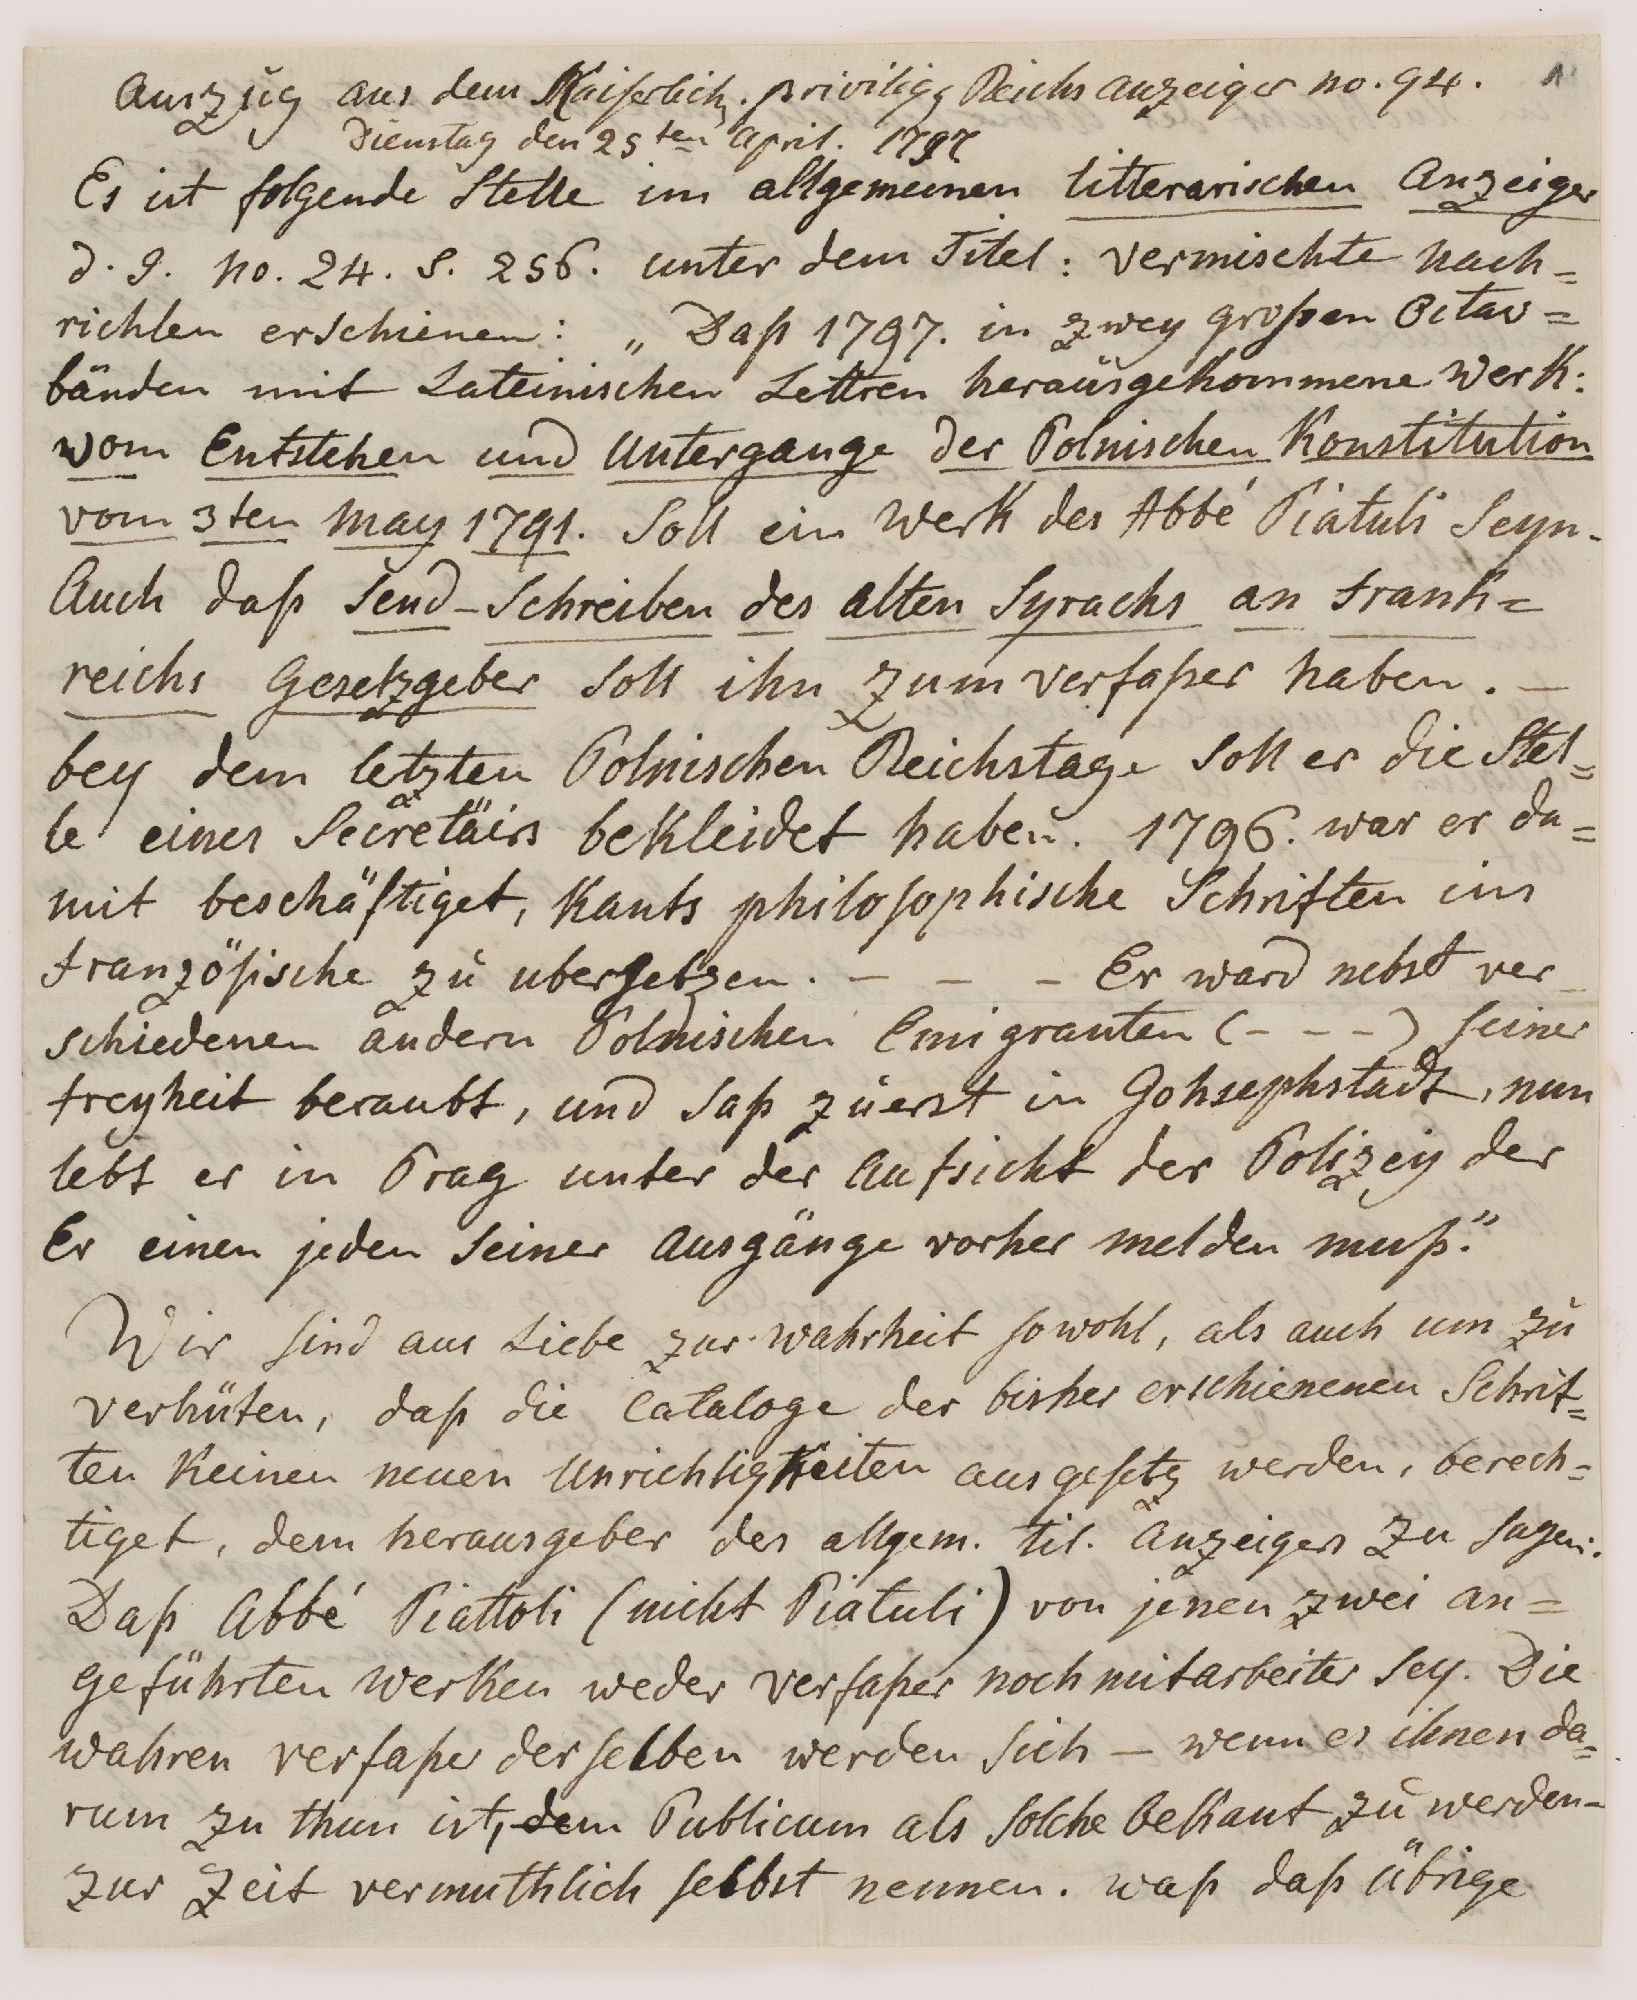 Auszug aus dem Kaiserlich. privilig. Reichs anzeiger no. 94. 1
Dienstag den 25ten April. 1797
Es ist folgende Stelle im allgemeinen litterarischen Anzeiger
d. J. no. 24. S. 256. unter dem Titel: vermischte nach=
richten erschienen: „Daß 1797. in zwey großen Octav=
bänden mit Lateinischen Lettren herausgekommene Werk:
vom Entstehen und Untergange der Polnischen Konstitution
vom 3ten May 1791. Soll ein Werk des Abbé Piatuli Seyn.
Auch daß Send-Schreiben des alten Syrachs an Frank=
reichs Gesetzgeber soll ihn zum verfaßer haben. —
bey dem letzten Polnischen Reichstage soll er die Stel=
le eines Secretärs bekleidet haben. 1796. war er da=
mit beschäftiget, Kants philosophische Schriften ins
französische zu ubersetzen. — — — Er ward nebst ver_
schiedenen andern Polnischen Emigranten (- - -) seiner
freyheit beraubt, und saß zuerst in Johsephstadt, nun
lebt er in Prag unter der Aufsicht der Polizey der
Er einen jeden seiner Ausgänge vorher melden muß."
Wir sind aus Liebe zur Wahrheit sowohl, als auch um zu
verhüten, daß die Cataloge der bisher erschienenen Schrif=
ten keinen neuen Unrichtigkeiten ausgesetz werden, berech=
tiget, dem herausgeber des allgem. lit. Anzeigers zu sagen:
Daß Abbé Piattoli (nicht Piatuli) von jenen zwei an=
geführten Werken weder verfaßer noch mitarbeiter sey. Die
wahren verfaßer derselben werden sich — wenn es ihnen da=
rum zu thun ist, dem Publicum als solche bekant zu werden-
zur Zeit vermuthlich selbst nennen. waß daß übrige